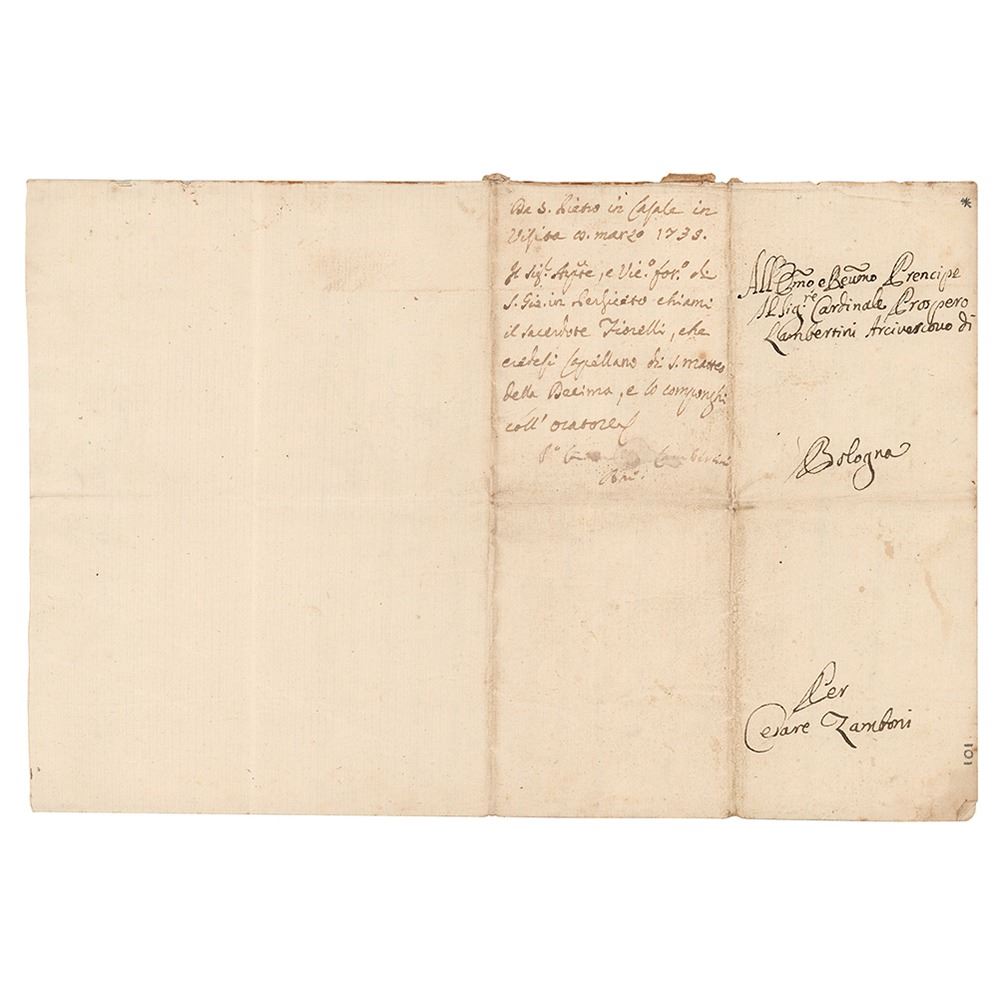 Da S. Pietro in Casale in
Visita marzo 1733.
Il Sig.r e Vic.o for.o di
S. Gio. in Persiceto chiami
il sacerdote Fiorelli, che
credesi Capellano di S. Matteo
della Decima, e lo componghi
coll' oratore
Lambertini
*
All Emo e Revmo Prencipe
Il Sig.re Cardinale Prospero
Lambertini Arcivescovo di
Bologna
Per
Cesare Zamboni
101